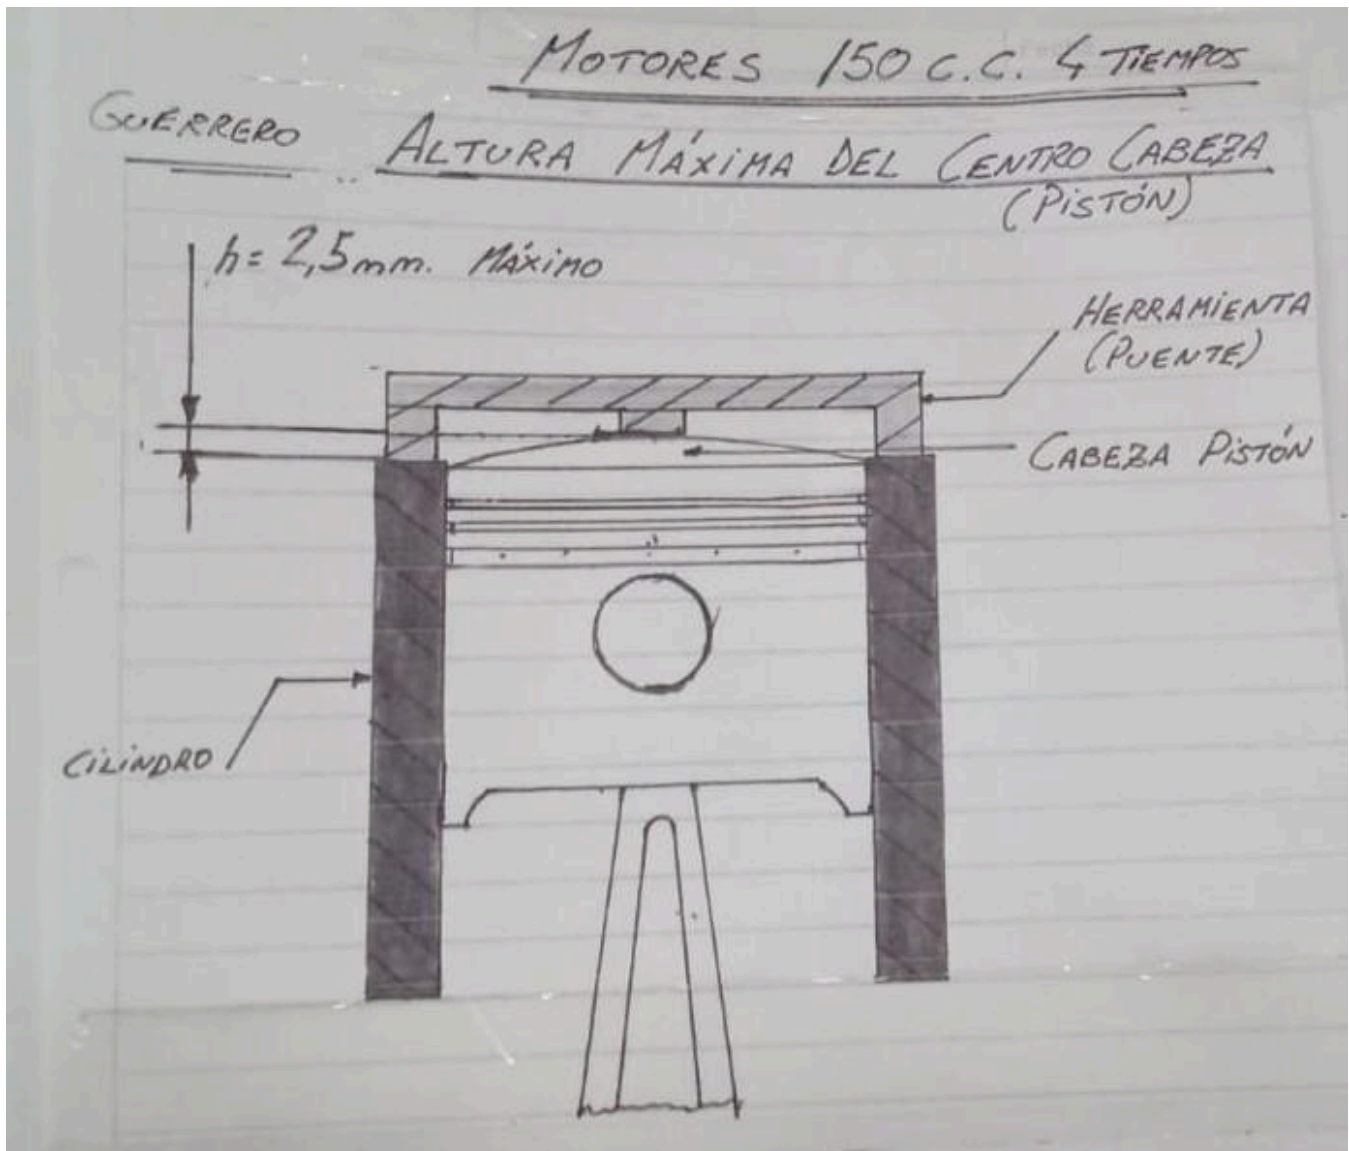 MOTORES 150 C.C. 4 TIEMPOS
GUERRERO
ALTURA MÁXIMA DEL CENTRO CABEZA
(PISTÓN)
h= 2,5mm. MÁXIMO
HERRAMIENTA
(PUENTE)
CABEZA PISTÓN
CILINDRO